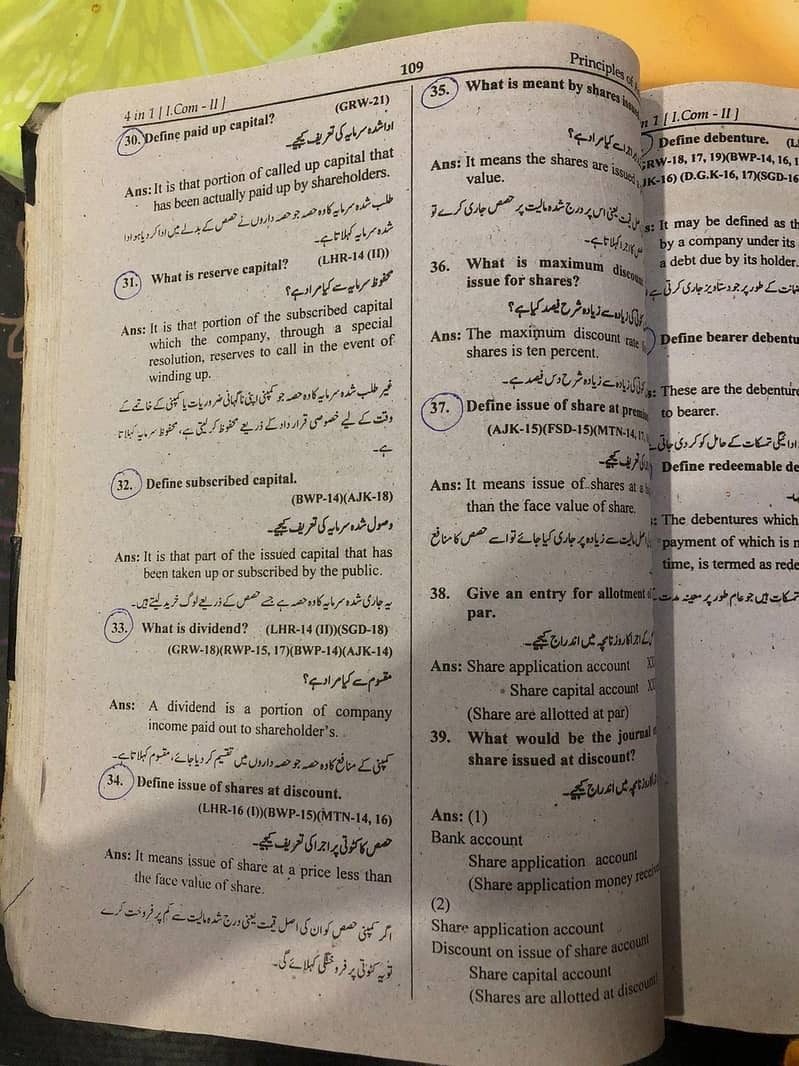 109
4 in 1 [ I.Com - II ]
Principles of
30. Define paid up capital?
(GRW-21)
ادا شدہ سرمایہ کی تعریف کیجیے۔
Ans: It is that portion of called up capital that
has been actually paid up by shareholders.
طلب شدہ سرمایہ کا وہ حصہ جو حصہ داروں نے حصص کے بدلے میں ادا کر دیا ہو ادا
شدہ سرمایہ کہلاتا ہے۔
(LHR-14 (II))
31. What is reserve capital?
محفوظ سرمایہ سے کیا مراد ہے؟
Ans: It is that portion of the subscribed capital
which the company, through a special
resolution, reserves to call in the event of
winding up.
غیر طلب شدہ سرمایہ کا وہ حصہ جو کمپنی اپنی ناگہانی ضروریات یا کمپنی کے خاتمے کے
وقت کے لیے خصوصی قرارداد کے ذریعے محفوظ کر لیتی ہے، محفوظ سرمایہ کہلاتا
ہے۔
32. Define subscribed capital.
(BWP-14)(AJK-18)
وصول شدہ سرمایہ کی تعریف کیجیے۔
Ans: It is that part of the issued capital that has
been taken up or subscribed by the public.
یہ جاری شدہ سرمایہ کا وہ حصہ ہے جسے حصص کے ذریعے لوگ خرید لیتے ہیں۔
33. What is dividend? (LHR-14 (II))(SGD-18)
(GRW-18)(RWP-15, 17)(BWP-14)(AJK-14)
مقسوم سے کیا مراد ہے؟
Ans: A dividend is a portion of company
income paid out to shareholder's.
کمپنی کے منافع کا وہ حصہ جو حصہ داروں میں تقسیم کر دیا جائے، مقسوم کہلاتا ہے۔
34. Define issue of shares at discount.
(LHR-16 (I))(BWP-15)(MTN-14, 16)
حصص کا کٹوتی پر اجرا کی تعریف کیجیے۔
Ans: It means issue of share at a price less than
the face value of share.
اگر کمپنی حصص کو ان کی اصل قیمت یعنی درج شدہ مالیت سے کم پر فروخت کرے
تو یہ کٹوتی پر فروختگی کہلائے گی۔
35. What is meant by shares issued
سے کیا مراد ہے؟
Ans: It means the shares are issued
value.
یعنی اس پر درج شدہ مالیت پر حصص جاری کرے تو
کہلاتا ہے۔
36. What is maximum discount
issue for shares?
کی زیادہ سے زیادہ شرح فیصد کیا ہے؟
Ans: The maximum discount rate
shares is ten percent.
کی زیادہ سے زیادہ شرح دس فیصد ہے۔
37. Define issue of share at premium
(AJK-15)(FSD-15)(MTN-14, 17,
کی تعریف کیجیے۔
Ans: It means issue of shares at a
than the face value of share.
اصل مالیت سے زیادہ پر جاری کیا جائے تو اسے حصص کا منافع
38. Give an entry for allotment of
par.
روزنامچہ میں اندراج کیجیے۔
Ans: Share application account
Share capital account
(Share are allotted at par)
39. What would be the journal
share issued at discount?
روزنامچہ میں اندراج کیجیے۔
Ans: (1)
Bank account
Share application account
(Share application money
(2)
Share application account
Discount on issue of share account
Share capital account
(Shares are allotted at discount
n 1 [ I.Com - II ]
Define debenture.
GRW-18, 17, 19)(BWP-14, 16,
JK-16) (D.G.K-16, 17)(SGD-16
s: It may be defined as
by a company under its
a debt due by its holder.
ضمانت کے طور پر جو دستاویز جاری کرتی ہے
Define bearer
s: These are the
to bearer.
ادائیگی تمسکات کے حامل کو کر دی جاتی
Define redeemable
: The debentures which
payment of which is
time, is termed as
تمسکات ہیں جو عام طور پر معینہ مدت